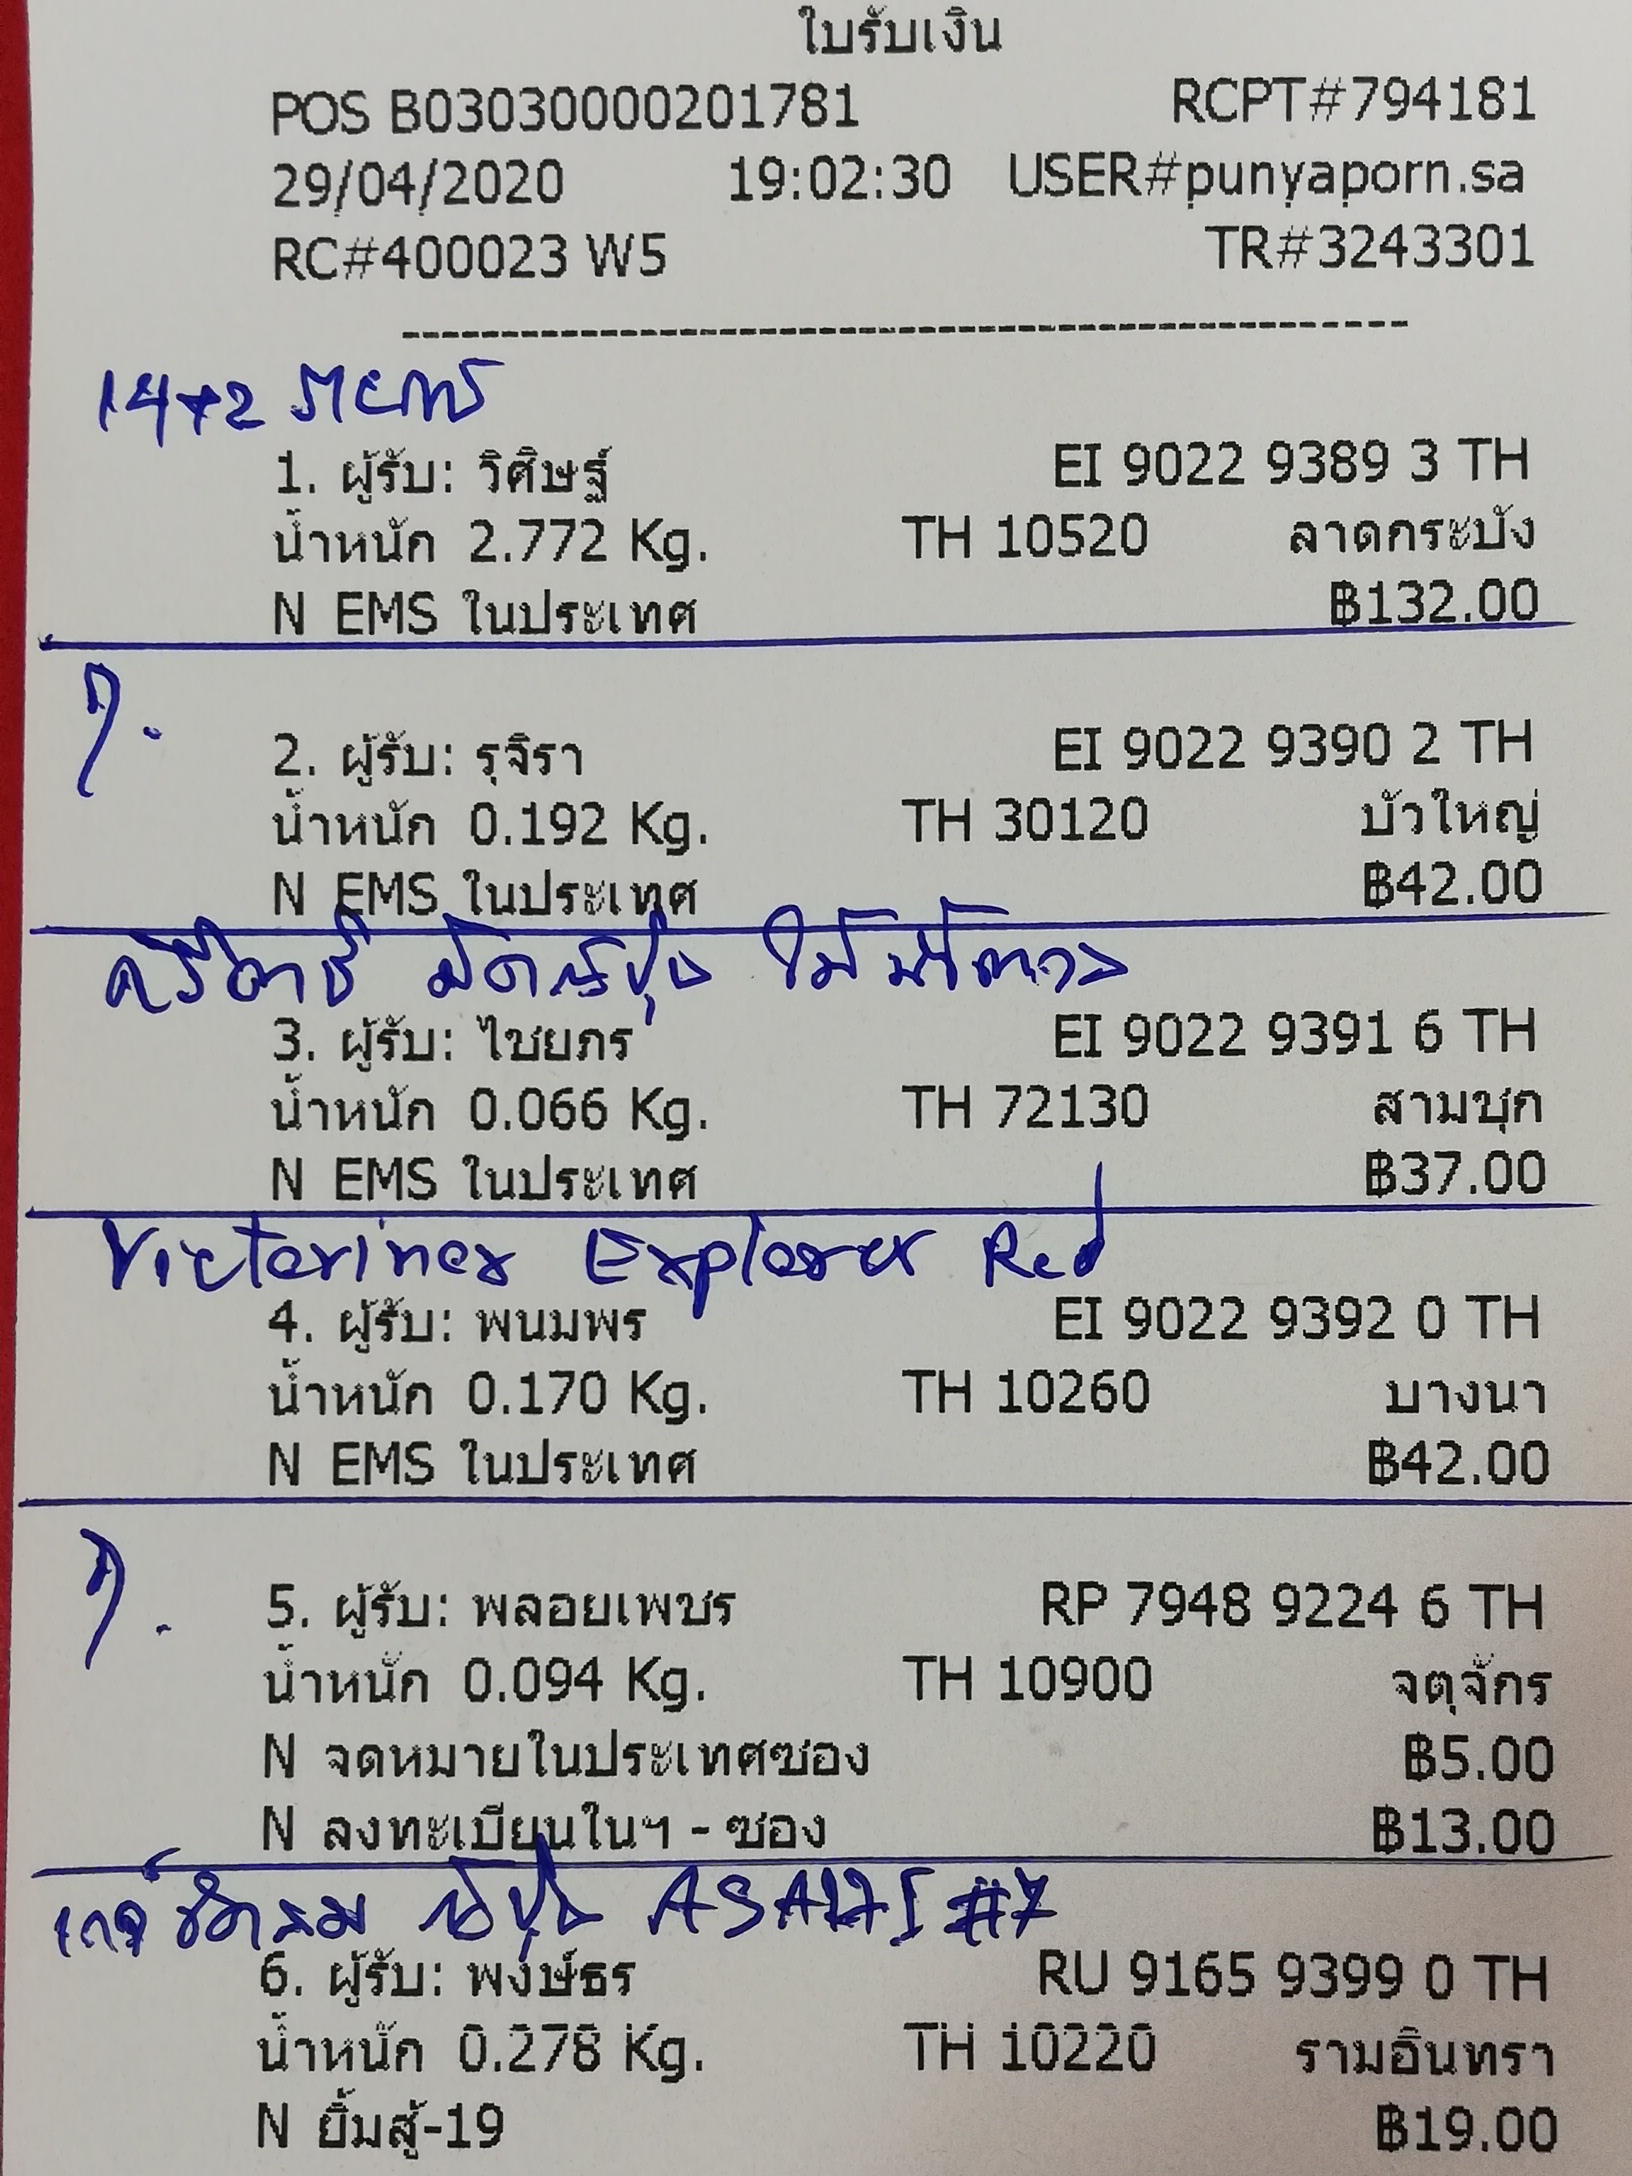 ใบรับเงิน
POS B03030000201781 RCPT#794181
29/04/2020 19:02:30 USER#punyaporn.sa
RC#400023 W5 TR#3243301
14+2
1. ผู้รับ: วิศิษฐ์ EI 9022 9389 3 TH
น้ำหนัก 2.772 Kg. TH 10520 ลาดกระบัง
N EMS ในประเทศ ฿132.00
2. ผู้รับ: รุจิรา EI 9022 9390 2 TH
น้ำหนัก 0.192 Kg. TH 30120 บัวใหญ่
N EMS ในประเทศ ฿42.00
3. ผู้รับ: ไชยภร EI 9022 9391 6 TH
น้ำหนัก 0.066 Kg. TH 72130 สามชุก
N EMS ในประเทศ ฿37.00
Victorinox Explorer Red
4. ผู้รับ: พนมพร EI 9022 9392 0 TH
น้ำหนัก 0.170 Kg. TH 10260 บางนา
N EMS ในประเทศ ฿42.00
5. ผู้รับ: พลอยเพชร RP 7948 9224 6 TH
น้ำหนัก 0.094 Kg. TH 10900 จตุจักร
N จดหมายในประเทศซอง ฿5.00
N ลงทะเบียนในฯ - ซอง ฿13.00
ญี่ปุ่น ASAHI #7
6. ผู้รับ: พงษ์ธร RU 9165 9399 0 TH
น้ำหนัก 0.278 Kg. TH 10220 รามอินทรา
N ยิ้มสู้-19 ฿19.00